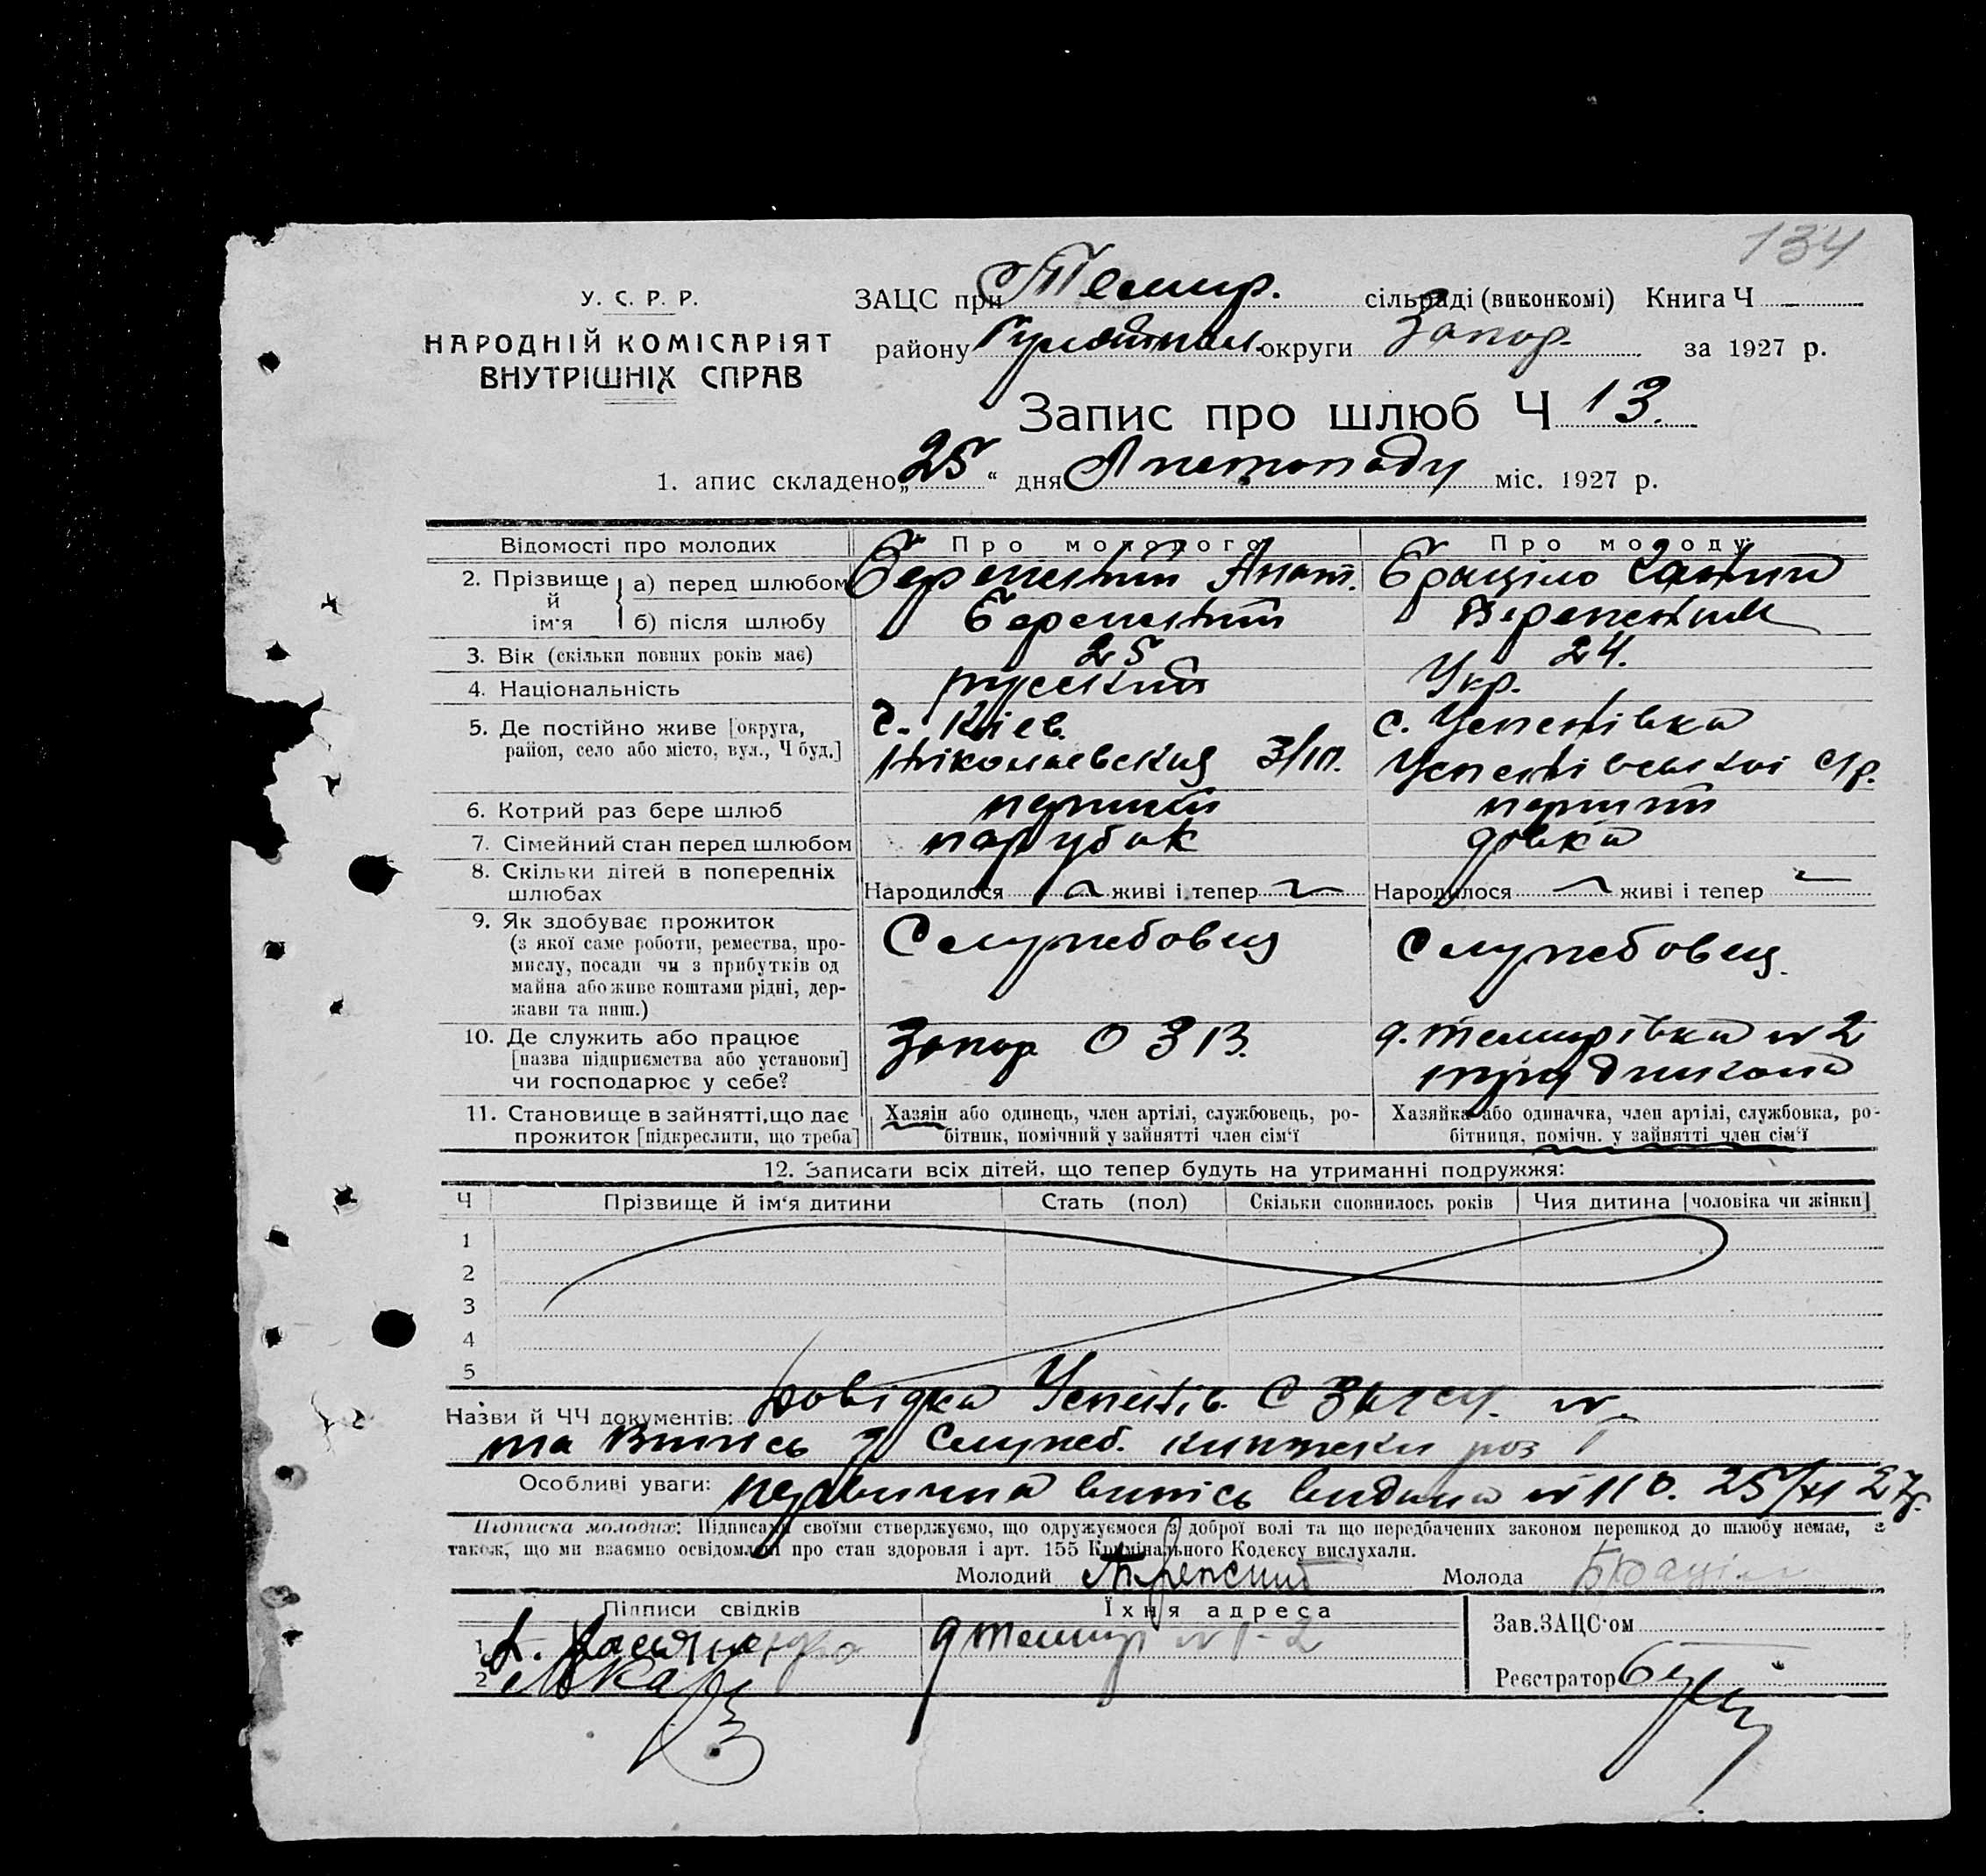 134
У. С. Р. Р.
НАРОДНІЙ КОМІСАРІЯТ
ВНУТРІШНІХ СПРАВ
ЗАЦС при Темир. сільраді (виконкомі) Книга Ч
району округи Запор. за 1927 р.
Запис про шлюб Ч 13.
1. апис складено „25“ дня Листопаду міс. 1927 р.
Відомості про молодих Про молодого Про молоду
2. Прізвище й ім‘я
а) перед шлюбом
б) після шлюбу
3. Вік (скільки повних років має) 25 24.
4. Національність русский Укр.
5. Де постійно живе [округа, г. Київ. с. Успенівка
район, село або місто, вул., Ч буд.] Ніколаевская Успенівської с/р.
6. Котрий раз бере шлюб перший перший
7. Сімейний стан перед шлюбом парубак дівка
8. Скільки дітей в попередніх
шлюбах Народилося живі і тепер Народилося живі і тепер
9. Як здобуває прожиток
(з якої саме роботи, ремества, про-
мислу, посади чи з прибутків од
майна або живе коштами рідні, дер-
жави та инш.)
Службовец Службовец.
10. Де служить або працює Запор. д. Темирівка № 2
[назва підприємства або установи]
чи господарює у себе?
11. Становище в зайнятті, що дає Хазяін або одинець, член артілі, службовець, ро- Хазяйка або одиначка, член артілі, службовка, ро-
прожиток [підкреслити, що треба] бітник, помічний у зайнятті член сім‘ї бітниця, помічн. у зайнятті член сім‘ї
12. Записати всіх дітей, що тепер будуть на утриманні подружжя:
Ч Прізвище й ім‘я дитини Стать (пол) Скільки сповнилось років Чия дитина [чоловіка чи жінки]
1
2
3
4
5
Назви й ЧЧ документів: Довідка Успенів. №
та Випись Служб. книжки
Особливі уваги: первична випісь видана № 110. 25/XI 27р.
Підписка молодих: Підписами своїми стверджуємо, що одружуємося з доброї волі та що передбачених законом перешкод до шлюбу немає, а
також, що ми взаємно освідомлені про стан здоровля і арт. 155 Кримінального Кодексу вислухали.
Молодий Молода
Підписи свідків Їхня адреса
Зав.ЗАЦС·ом
1
2
Реєстратор